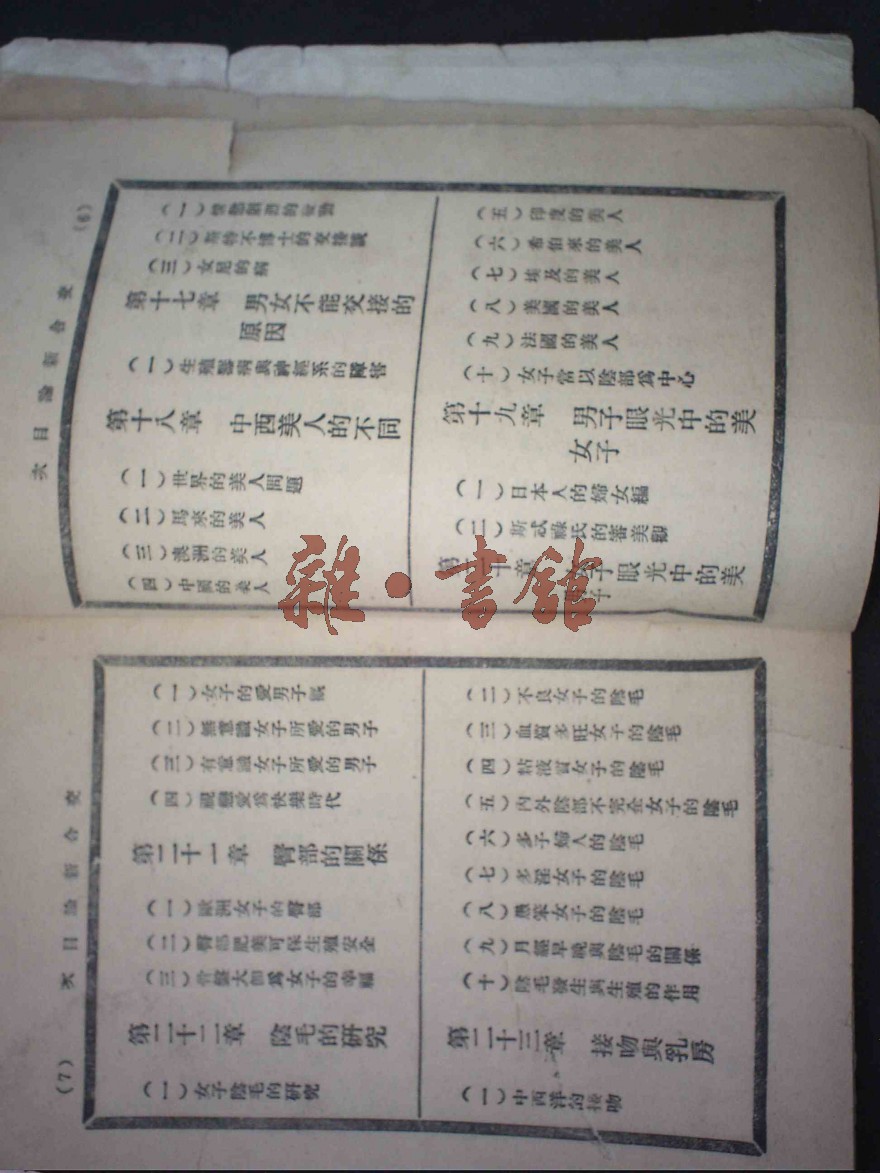 (6)
交合新論目次
(二)斯特不博士的交接談
(三)女尼的病
第十七章　男女不能交接的
原因
(一)生殖器病與神經系的障害
第十八章　中西美人的不同
(一)世界的美人問題
(二)馬來的美人
(三)澳洲的美人
(四)中國的美人
(五)印度的美人
(六)希伯來的美人
(七)埃及的美人
(八)美國的美人
(九)法國的美人
(十)女子當以陰部爲中心
第十九章　男子眼光中的美
女子
(一)日本人的婦女編
(二)斯忒縣氏的審美觀
第二十章　女子眼光中的美
男子
雜·書館
(7)
交合新論目次
(一)女子的愛男子
(二)無意識女子所愛的男子
(三)有意識女子所愛的男子
(四)視戀愛爲快樂時代
第二十一章　臀部的關係
(一)歐洲女子的臀部
(二)臀部肥美可保生殖安全
(三)骨盤大即爲女子的幸福
第二十二章　陰毛的研究
(一)女子陰毛的研究
(二)不良女子的陰毛
(三)血質多旺女子的陰毛
(四)粘液質女子的陰毛
(五)內外陰部不完全女子的陰毛
(六)多子婦人的陰毛
(七)多淫女子的陰毛
(八)愚笨女子的陰毛
(九)月經早晚與陰毛的關係
(十)陰毛發生與生殖的作用
第二十三章　接吻與乳房
(一)中西洋的接吻